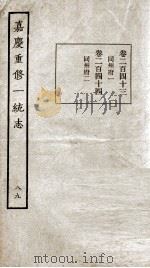 嘉慶重修一統志
八九
卷二百四十三
同州府一
卷二百四十四
同州府二